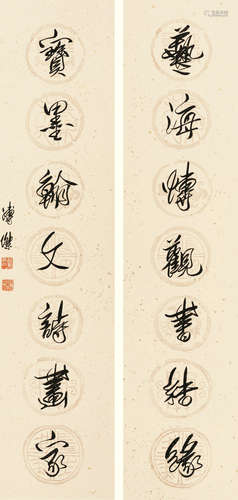 藝海博觀書結緣
寶墨翰文詩畫家
溥傑